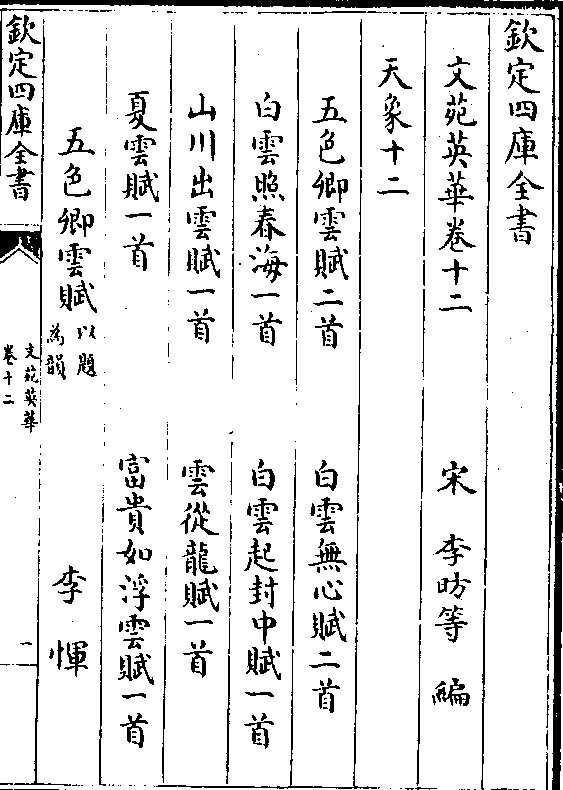 欽定四庫全書
文苑英華卷十二
宋 李昉等 編
天象十二
五色卿雲賦二首 白雲無心賦二首
白雲照春海一首 白雲起封中賦一首
山川出雲賦一首 雲從龍賦一首
夏雲賦一首 富貴如浮雲賦一首
五色卿雲賦以題為韻 李惲
欽定四庫全書
文苑英華
卷十二
一